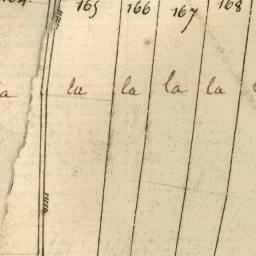 164. 165 166 167 168
la la la la la